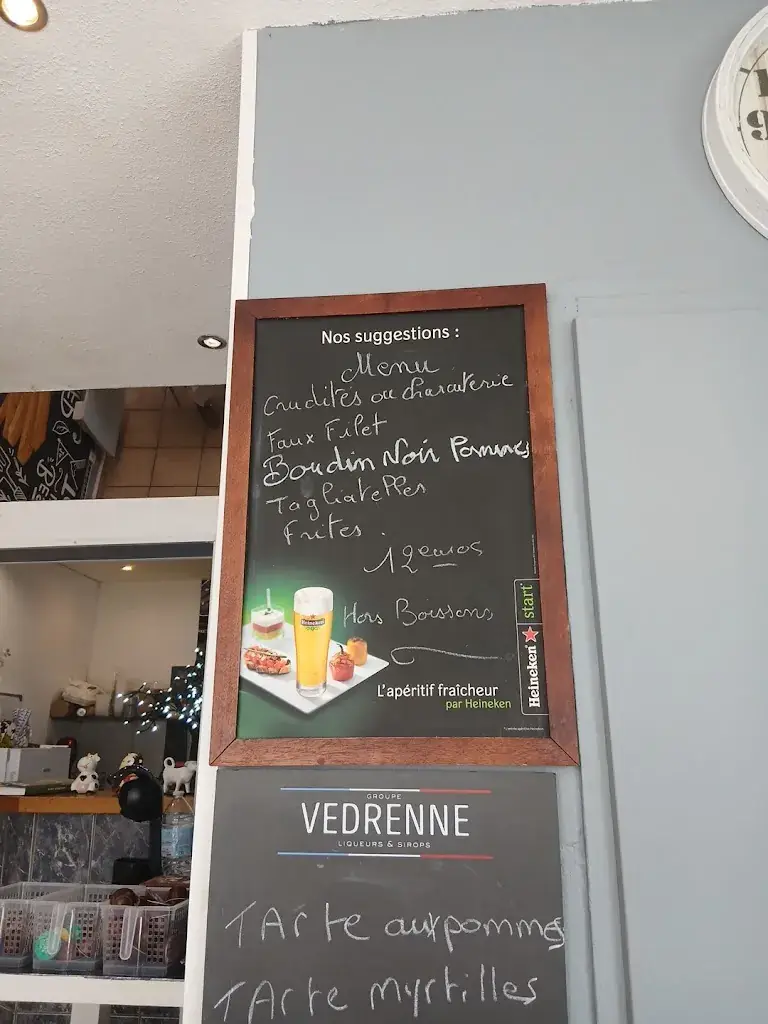 Nos suggestions :
Menu
Crudités ou charcuterie
Faux Filet
Boudin Noir Pommes
Tagliatelles
Frites
12 euros
Hors Boissons
Heineken
Heineken start
L'apéritif fraîcheur
par Heineken
GROUPE
VEDRENNE
LIQUEURS & SIROPS
TArte aux pommes
TArte myrtilles
9